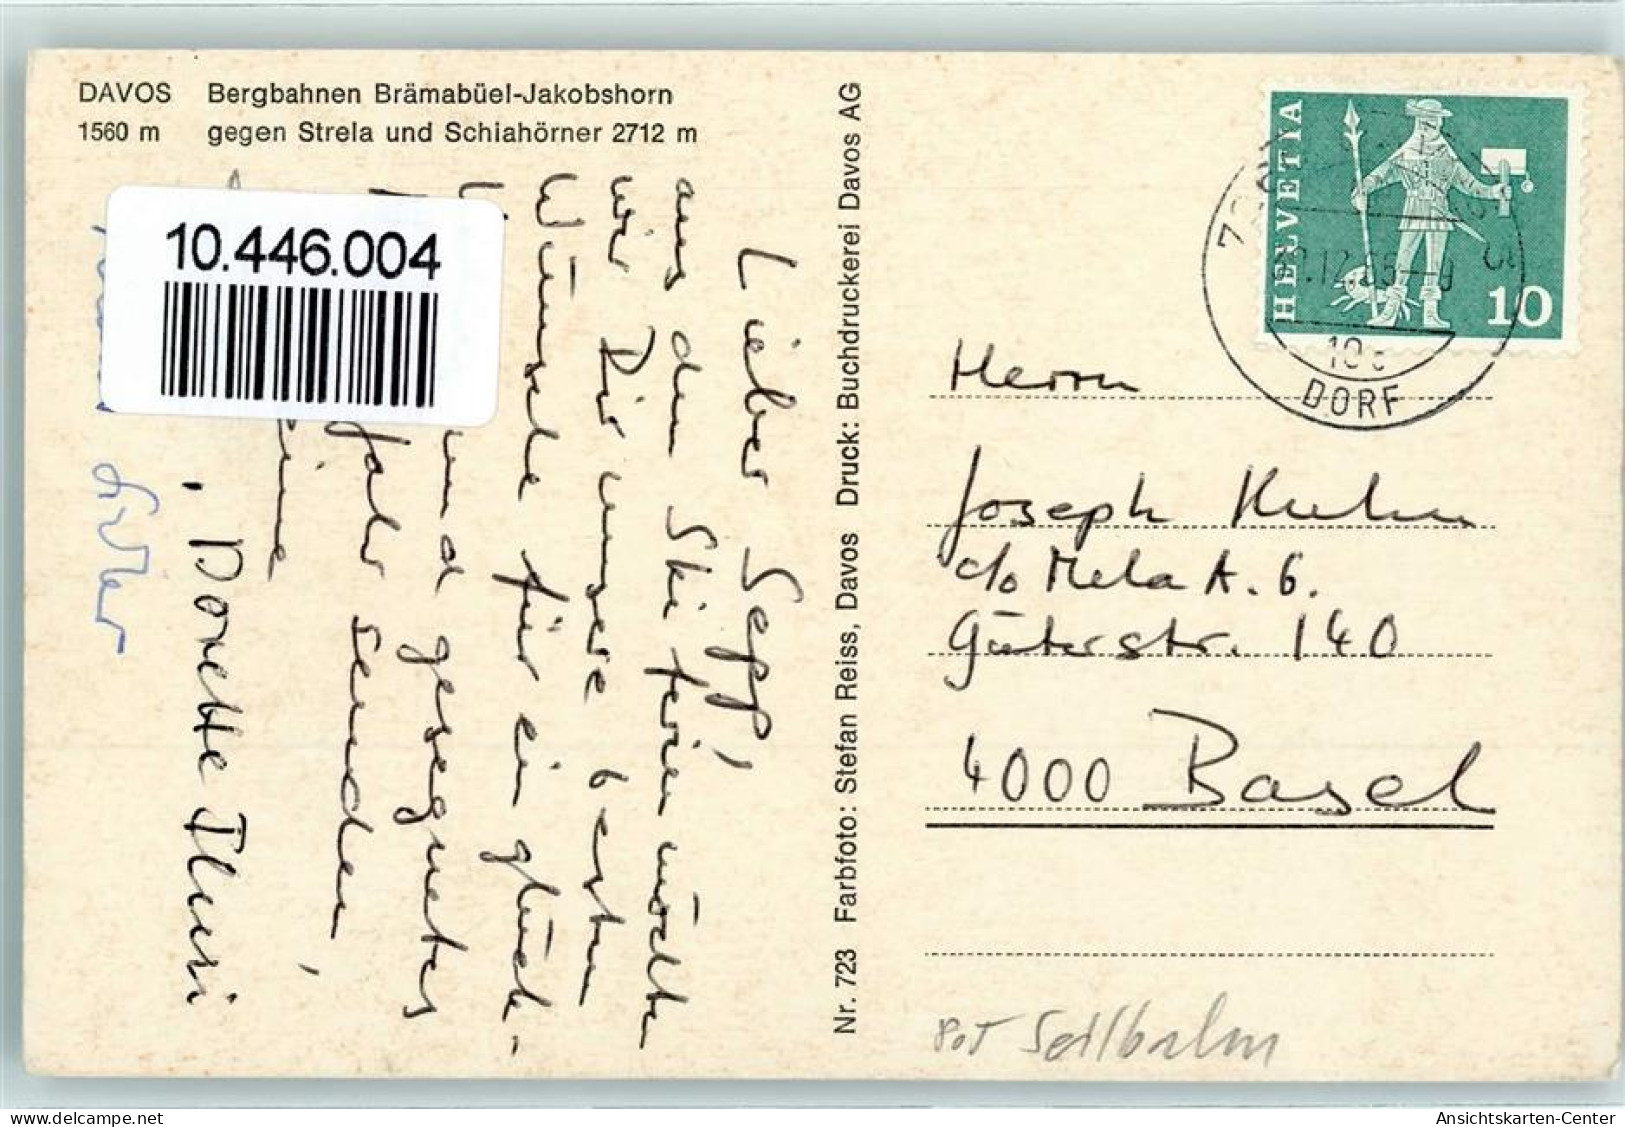 DAVOS Bergbahnen Brämabüel-Jakobshorn
1560 m gegen Strela und Schiahörner 2712 m
10.446.004
Lieber Sepp,
aus den Skiferien möchten
wir Dir unsere besten
Wünsche für ein glück-
und gesegnetes
Jahr senden,
Dorette
Nr. 723 Farbfoto: Stefan Reiss, Davos Druck: Buchdruckerei Davos AG
HELVETIA
10
DORF
Herrn
Joseph Kuhn
c/o Mela A. G.
Güterstr. 140
4000 Basel
Seilbahn
www.delcampe.net
Ansichtskarten-Center